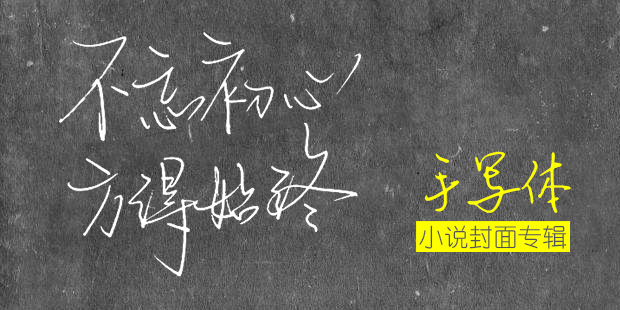 不忘初心
方得始终
手写体
小说封面专辑